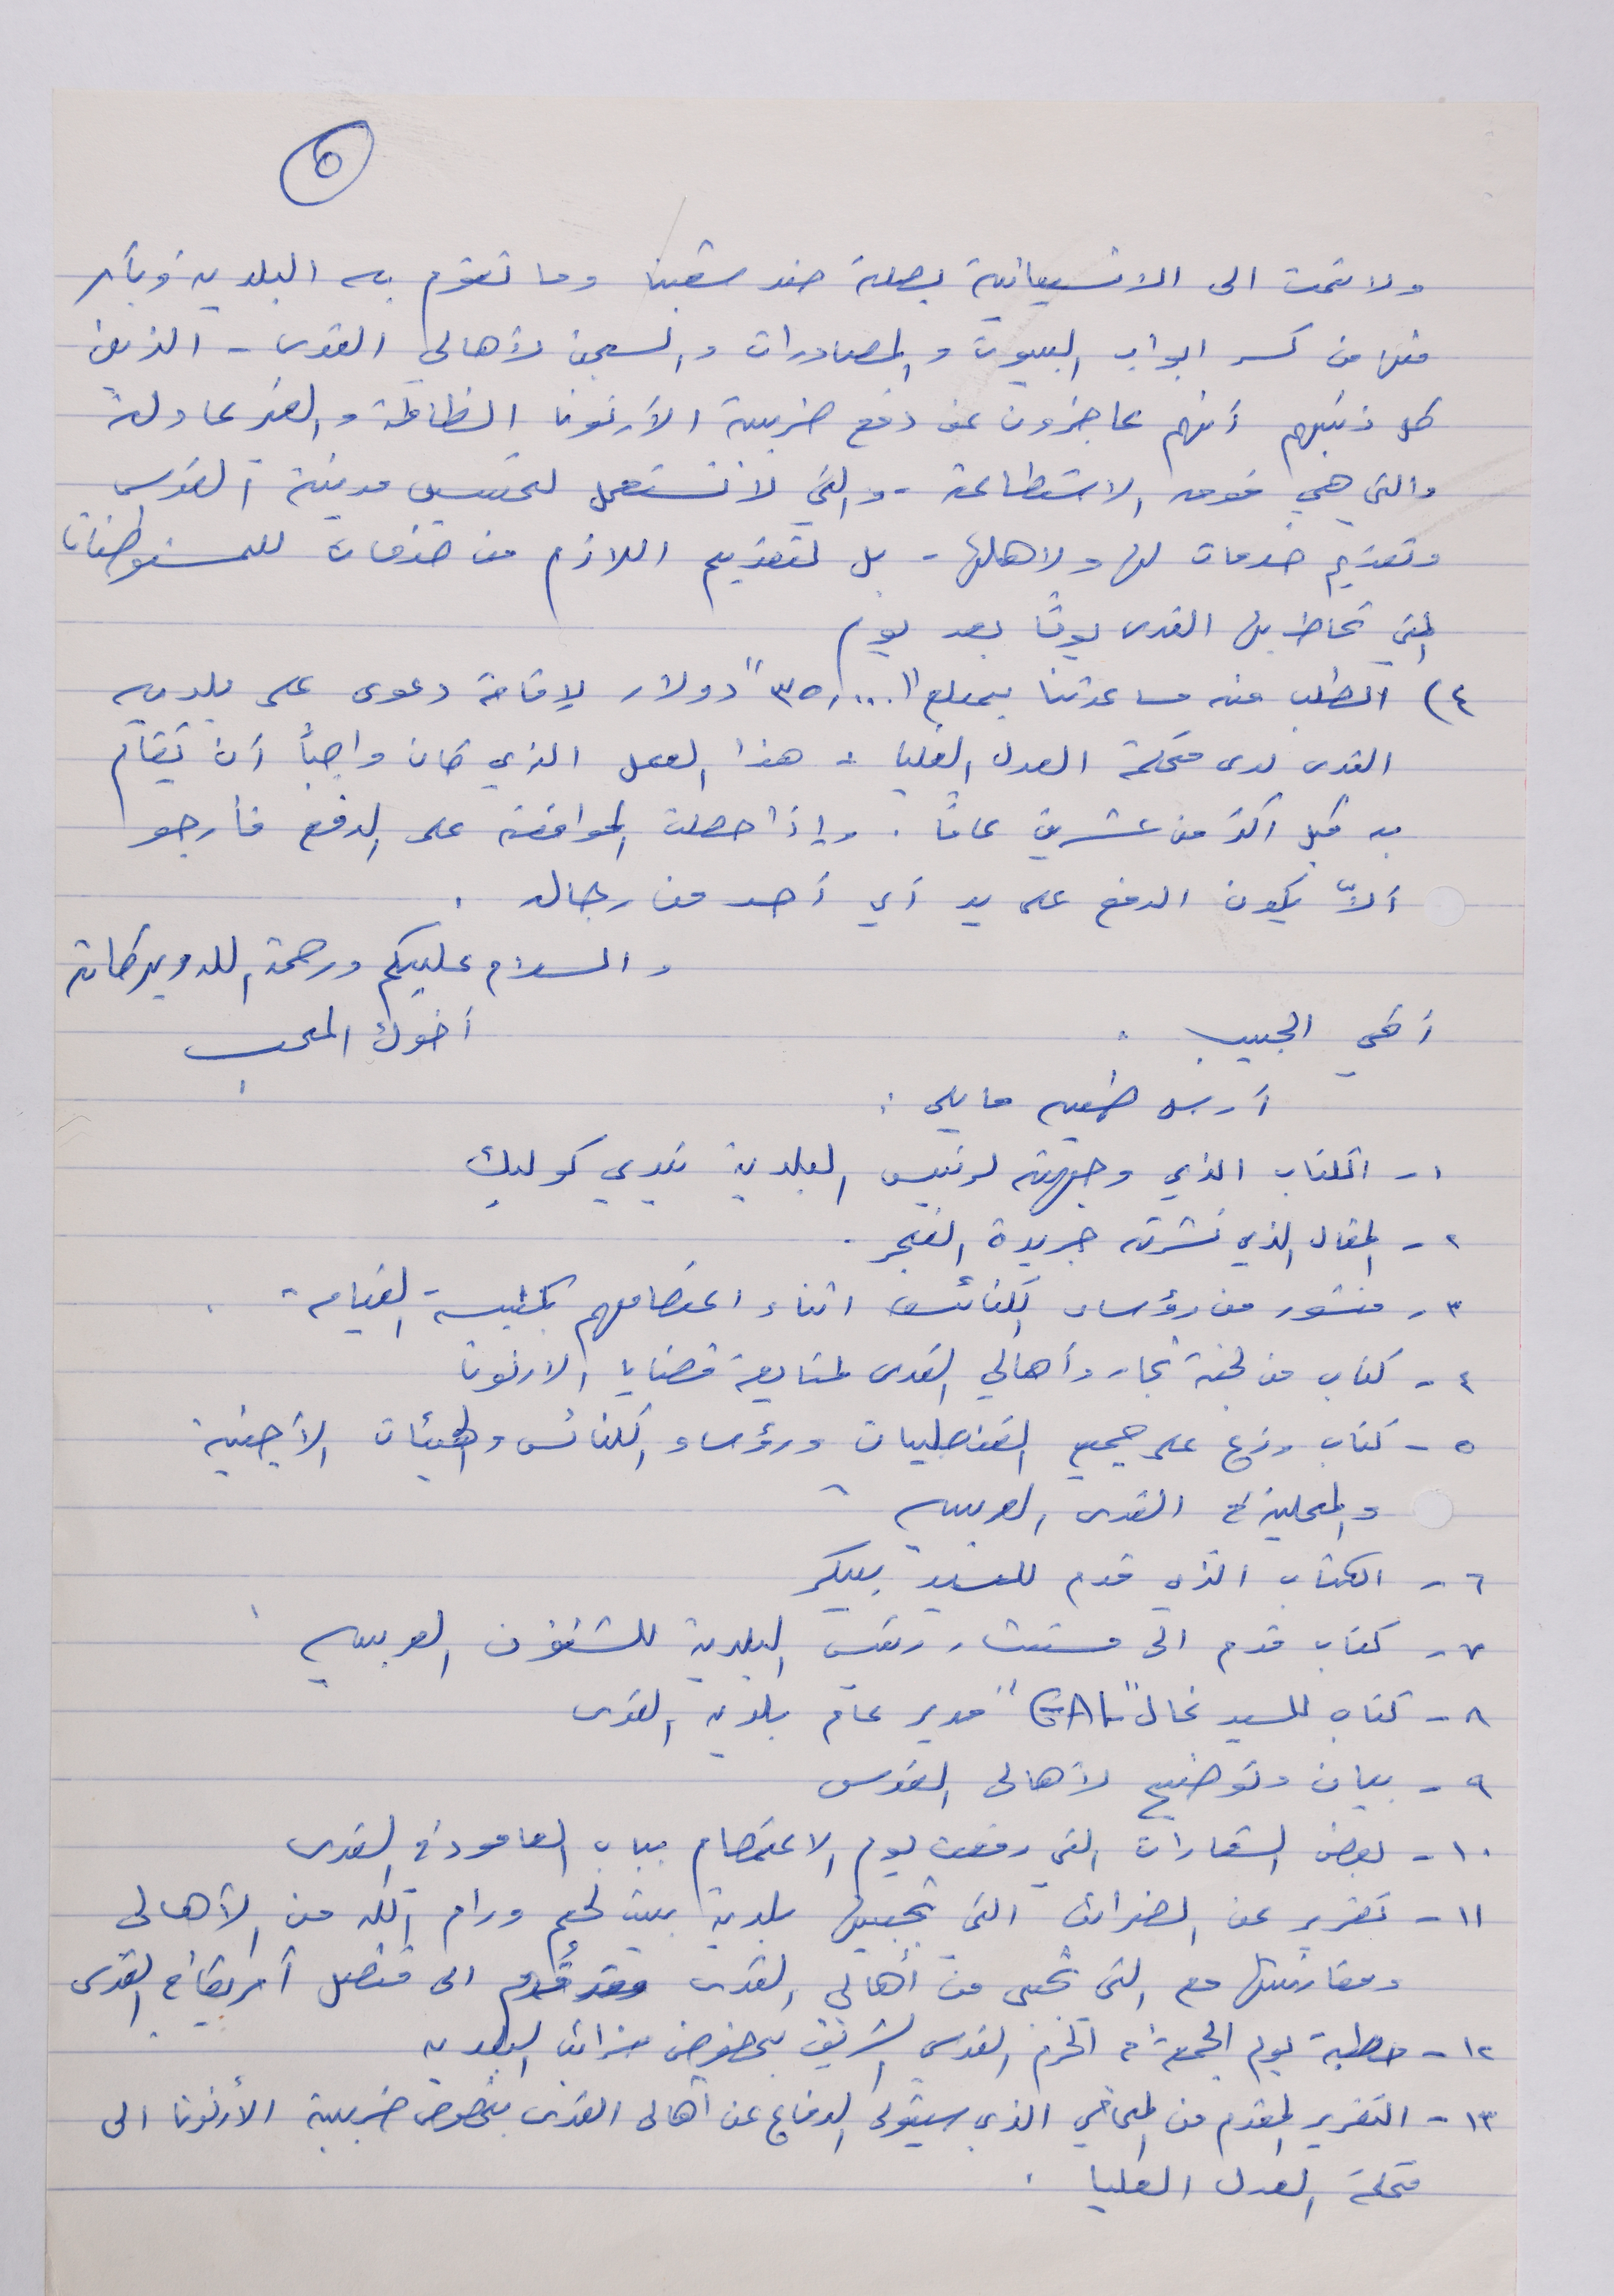 ٥
ولا تمت الى الانسانية بصلة ضد شعبنا وما تقوم به البلدية وبأمر
منها من كسر ابواب البيوت والمصادرات والسجن لأهالي القدس - الذين
كل ذنبهم أنهم عاجزون عن دفع ضريبة الأرنونا الظالمة والغير عادلة
والتي هي فوق الاستطاعة - والتي لا تستعمل لتحسين مدينة القدس
وتقديم خدمات لها ولاهلها - بل لتقديم اللازم من خدمات للمستوطنات
التي تحاط بها القدس يوماً بعد يوم
٤) الطلب منه مساعدتنا بمبلغ "٣٥,٠٠٠" دولار لإقامة دعوى على بلدية
القدس لدى محكمة العدل العليا : هذا العمل الذي كان واجباً أن يُقام
به قبل اكثر من عشرين عاماً . وإذا حصلت الموافقة على الدفع فأرجو
ألاّ يكون الدفع على يد أي أحد من رجاله .
والسلام عليكم ورحمة الله وبركاته
أخوك المحب
أخي الحبيب :
أرسل طيه ما يلي :
١- الكتاب الذي وجهته لرئيس البلدية تيدي كوليك
٢- المقال الذي نشرته جريدة الفجر .
٣- منشور من رؤساء الكنائس اثناء اعتصامهم بكنيسة القيامة .
٤- كتاب من لجنة تجار وأهالي القدس لمتابعة قضايا الارنونا
٥- كتاب وزع على جميع القنصليات ورؤساء الكنائس والهيئات الأجنبية
والمحلية في القدس العربية
٦- الكتاب الذي قدم للسيد بيكر
٧- كتاب قدم الى مستشار رئيس البلدية للشئون العربية
٨- كتاب للسيد غال "GAL" مدير عام بلدية القدس
٩- بيان وتوضيح لأهالي القدس
١٠- بعض الشعارات التي رفعت يوم الاعتصام بباب العامود في القدس
١١- تقرير عن الضرائب التي تجبيها بلدية بيت لحم ورام الله من الأهالي
ومقارنتها مع التي تجبى من أهالي القدس وقد قُدم الى قنصل أمريكا في القدس
١٢- خطبة يوم الجمعة في الحرم القدسي الشريف بخصوص ضرائب البلدية
١٣- التقرير المقدم من المحامي الذي سيتولى الدفاع عن أهالي القدس بخصوص ضريبة الأرنونا الى
محكمة العدل العليا .